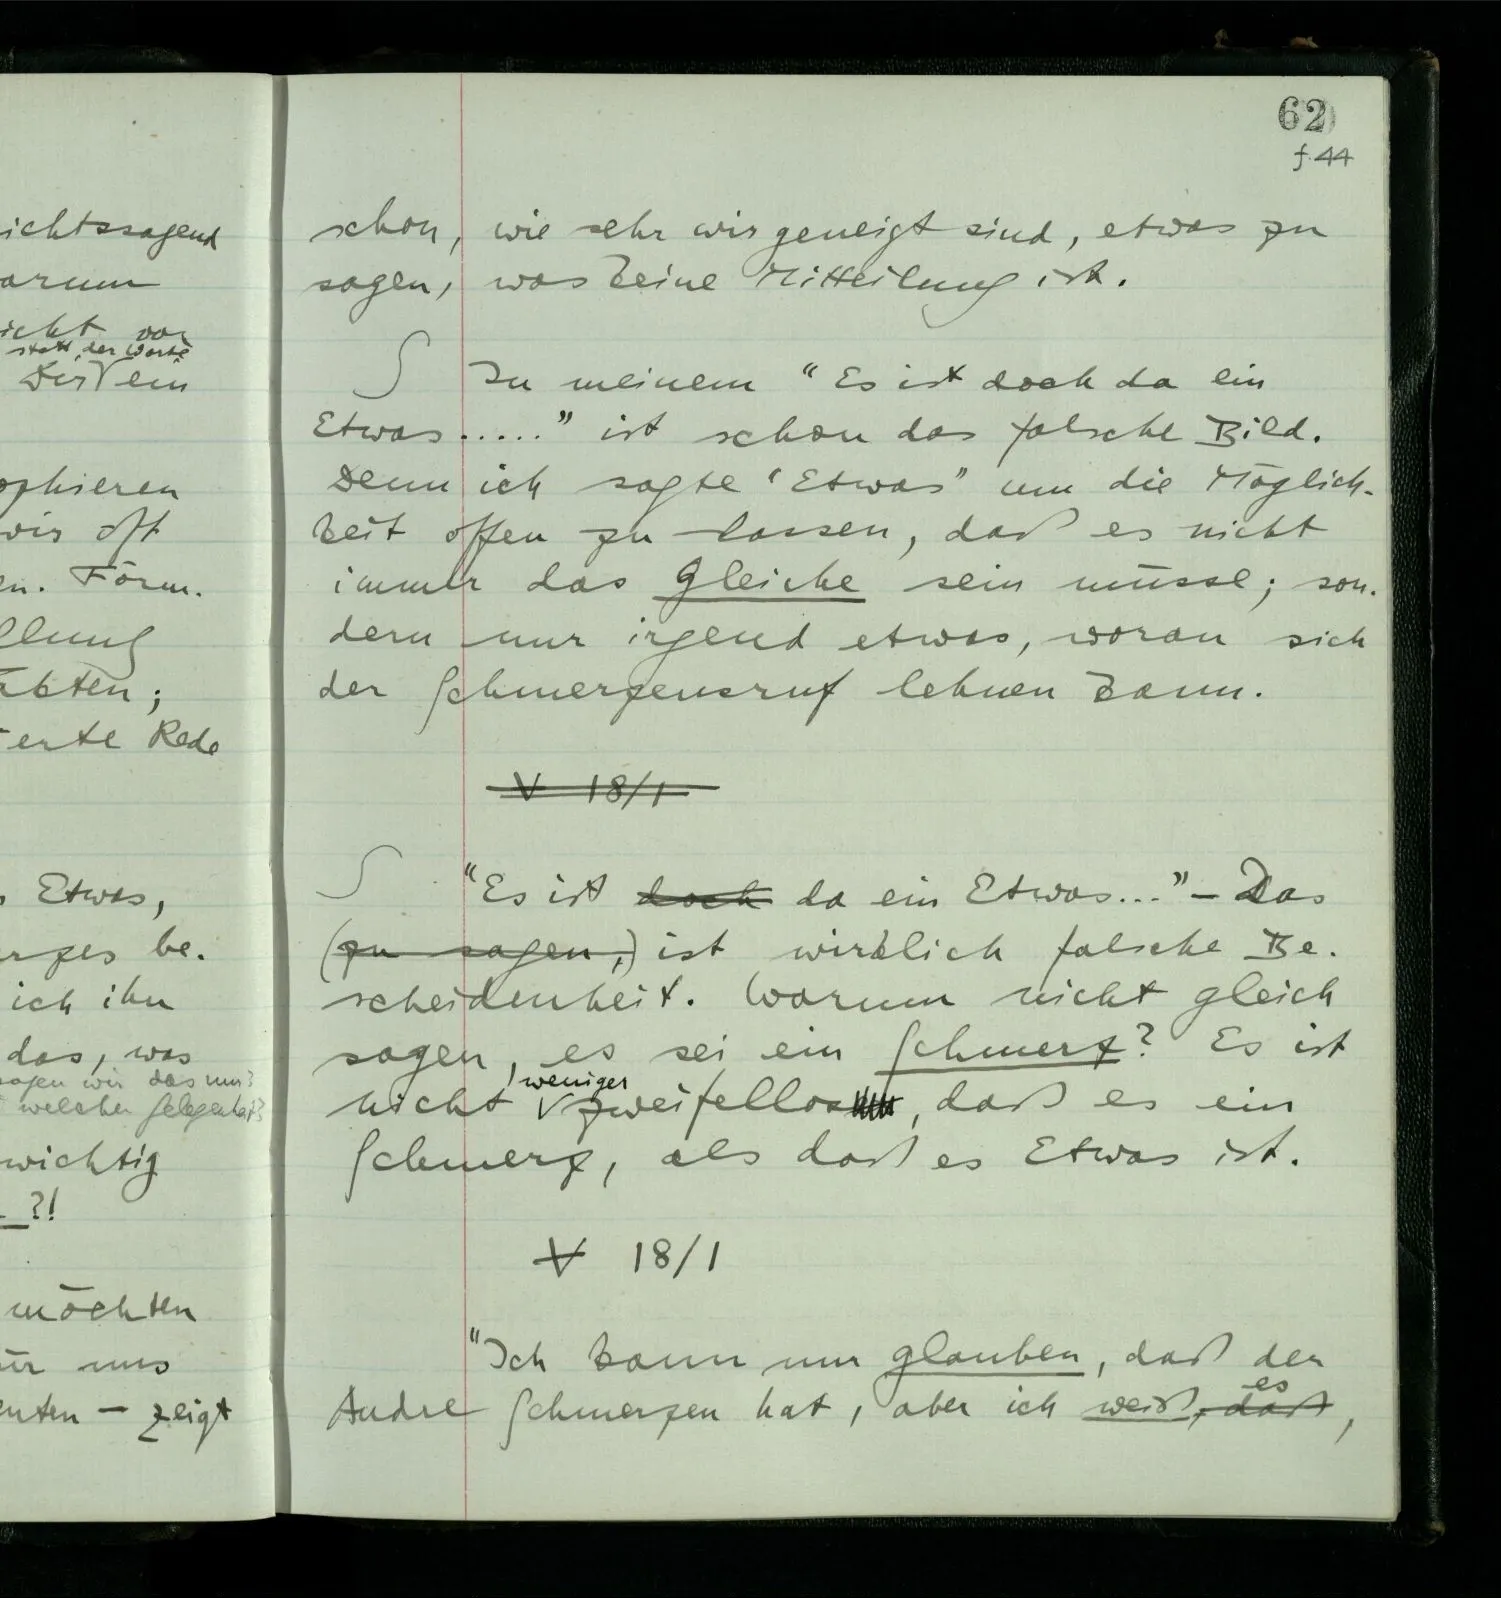 ichtssagend
arum
icht vor
statt der Worte
Dir V ein
ophieren
wir oft
en. Form-
llung
akten;
erte Rede
Etwas,
erzes be-
ich ihn
das, was
sagen wir das nun?
welcher Gelegenheit?
wichtig
?!
möchten
ür uns
enten — zeigt
62
f.44
schon, wie sehr wir geneigt sind, etwas zu
sagen, was keine Mitteilung ist.
∫ In meinem "Es ist doch da ein
Etwas....." ist schon das falsche Bild.
Denn ich sagte "Etwas" um die Möglich-
keit offen zu lassen, daß es nicht
immer das Gleiche sein müsse; son-
dern nur irgend etwas, woran sich
der Schmerzensruf lehnen kann.
V 18/1
∫ "Es ist doch da ein Etwas..." – Das
(zu sagen,) ist wirklich falsche Be-
scheidenheit. Warum nicht gleich
sagen, es sei ein Schmerz? Es ist
weniger
nicht V zweifellos, daß es ein
Schmerz, als daß es Etwas ist.
V 18/1
"Ich kann nur glauben, daß der
es
Andre Schmerzen hat, aber ich weiß, daß,